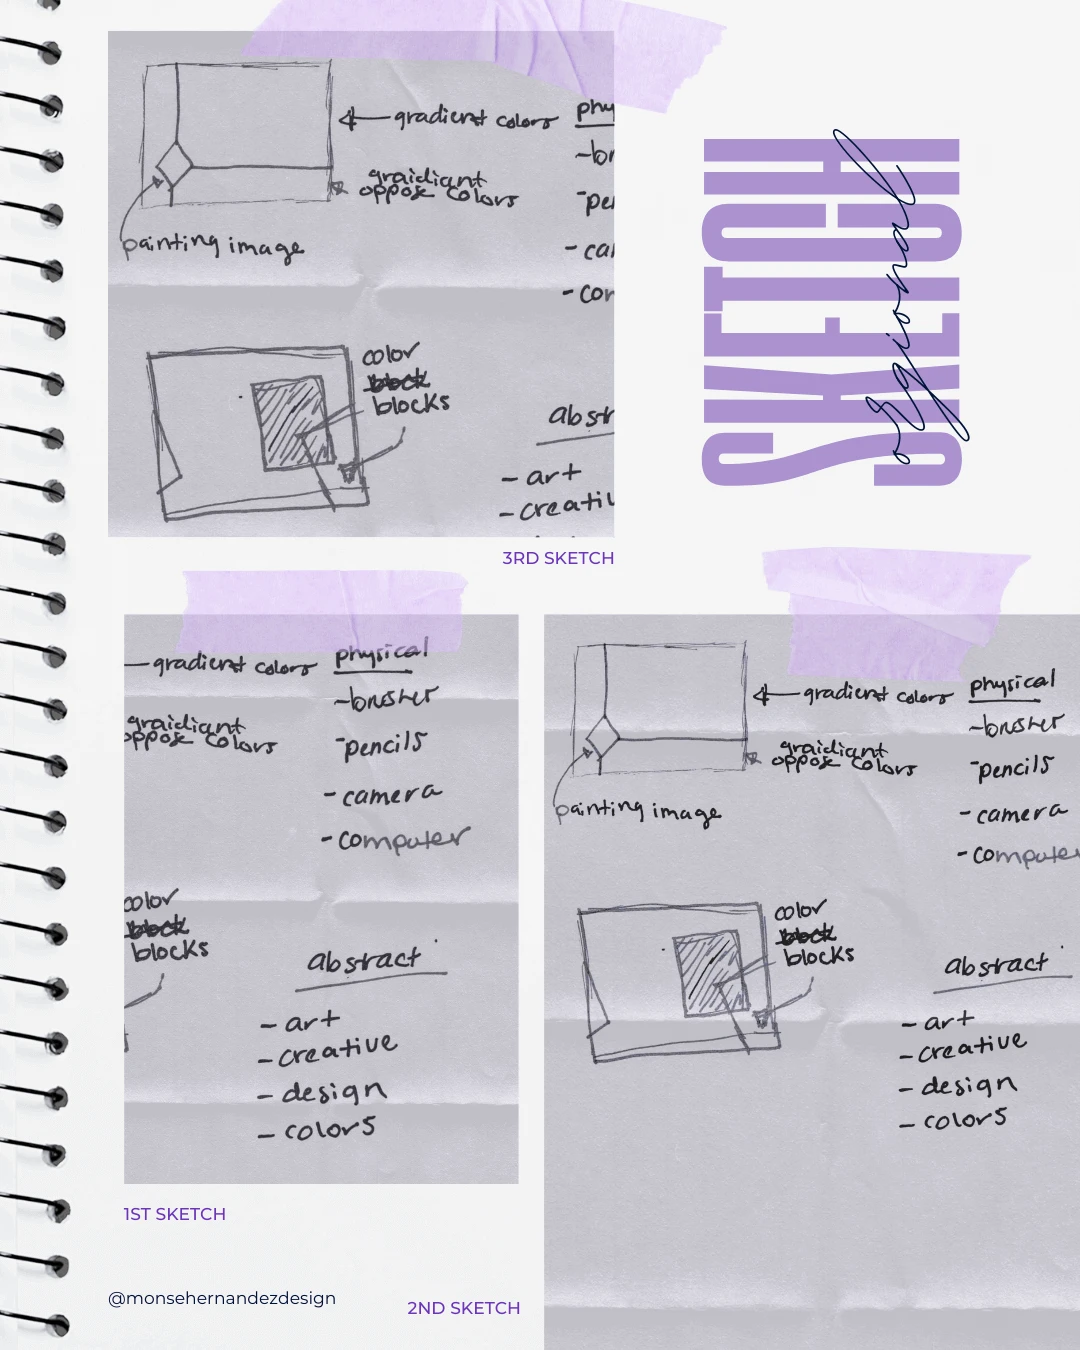 gradient colors
graidiant
oppose colors
painting image
phy
-br
-pe
-ca
-con
color
block
blocks
abstr
- art
- creativ
3RD SKETCH
SKETCH
orgional
gradient colors
graidiant
oppose colors
physical
-pencils
-camera
-computer
color
block
blocks
abstract
- art
- creative
- design
- colors
1ST SKETCH
gradient colors
graidiant
oppose colors
painting image
physical
-pencils
-camera
-computer
color
block
blocks
abstract
- art
- creative
- design
- colors
@monsehernandezdesign
2ND SKETCH